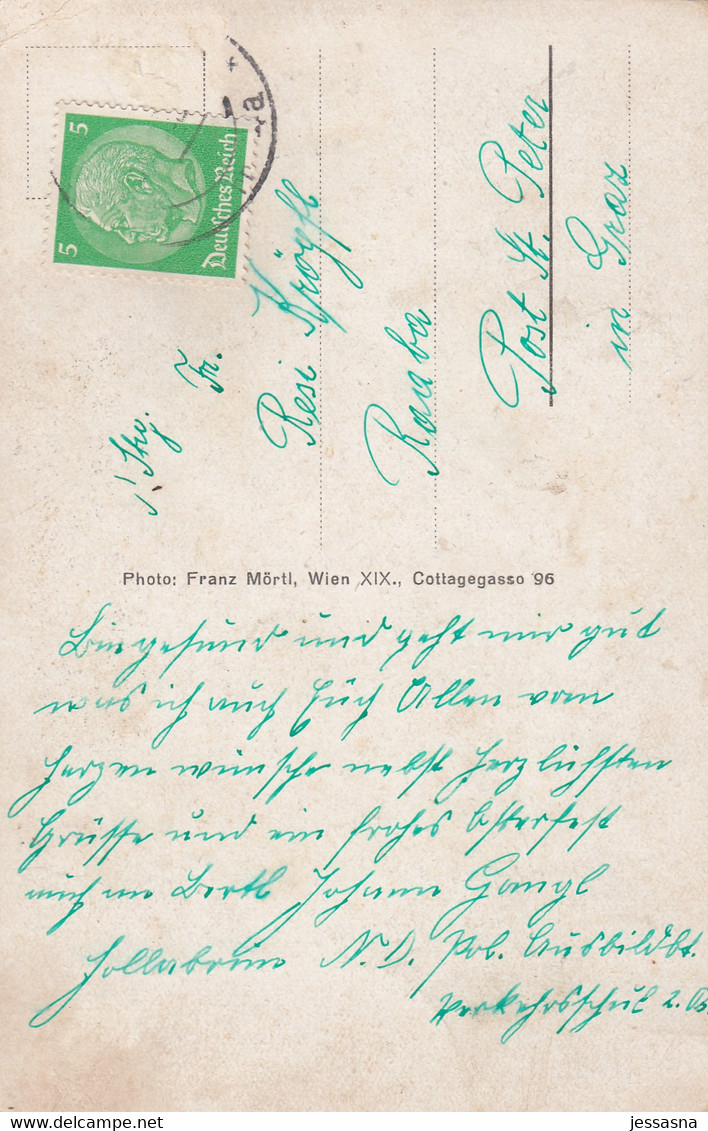 5
5
Deutsches Reich
Fr.
Resi Kröpfl
Raaba
Post St. Peter
in Graz
Photo: Franz Mörtl, Wien XIX., Cottagegasse 96
Bin gesund und geht mir gut
was ich auch Euch Allen vom
Herzen wünsche nebst herzlichsten
Grüsse und ein frohes Osterfest
auch an Bertl Johann Gangl
Hollabrunn N.D. Pol. Ausbildbt.
Verkehrsschul 2.
jessasna